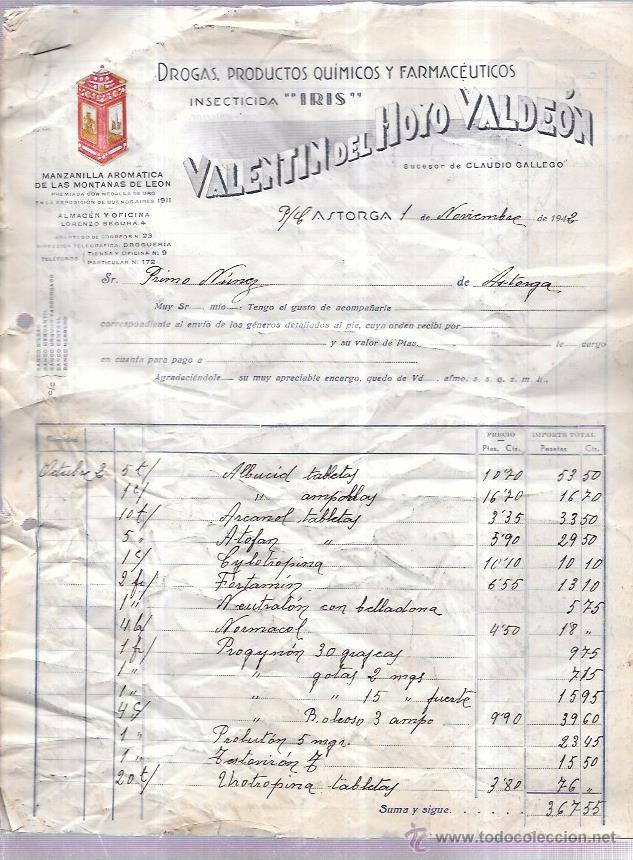 DROGAS, PRODUCTOS QUÍMICOS Y FARMACÉUTICOS
INSECTICIDA "IRIS"
VALENTIN DEL HOYO VALDEÓN
Sucesor de CLAUDIO GALLEGO
MANZANILLA AROMATICA
DE LAS MONTAÑAS DE LEON
PREMIADA CON MEDALLA DE ORO
EN LA EXPOSICIÓN DE BUENOS AIRES 1911
ALMACÉN Y OFICINA
LORENZO SEGURA, 4
APARTADO DE CORREOS N.º 23
DIRECCIÓN TELEGRÁFICA: DROGUERIA
TELÉFONOS { TIENDA Y OFICINA N.º 9
PARTICULAR N.º 172
ASTORGA 1 de Noviembre de 1942
Sr. Primo Núñez de Astorga
Muy Sr. mío: Tengo el gusto de acompañarle
correspondiente al envío de los géneros detallados al pie, cuya orden recibí por
y su valor de Ptas. le cargo
en cuanta para pago a
Agradeciéndole su muy apreciable encargo, quedo de Vd. afmo. s. s. q. s. m. b.,
PRECIO IMPORTE TOTAL
Ptas. Cts. Pesetas Cts.
Octubre 2 5 t/ Albucid tabletas 10'70 53 50
1 c/ " ampollas 16'70 16 70
10 t/ Arcanol tabletas 3'35 33 50
5 " Atofan " 5'90 29 50
1 c/ Cylotropina 10'10 10 10
2 fr/ Festamin 6'55 13 10
1 " Neutralón con belladona 5 75
4 Normacol 4'50 18 "
1 fr/ Progynón 30 grajeas 9 75
1 " " gotas 2 mgs 7 15
1 " " " 15 " fuerte 15 95
4 c/ " B. oleoso 3 ampo 9'90 39 60
1 " Proluton 5 mgr. 23 45
1 " Testoviron 15 50
20 t/ Urotropina tabletas 3'80 76 "
Suma y sigue 367 55
www.todocoleccion.net